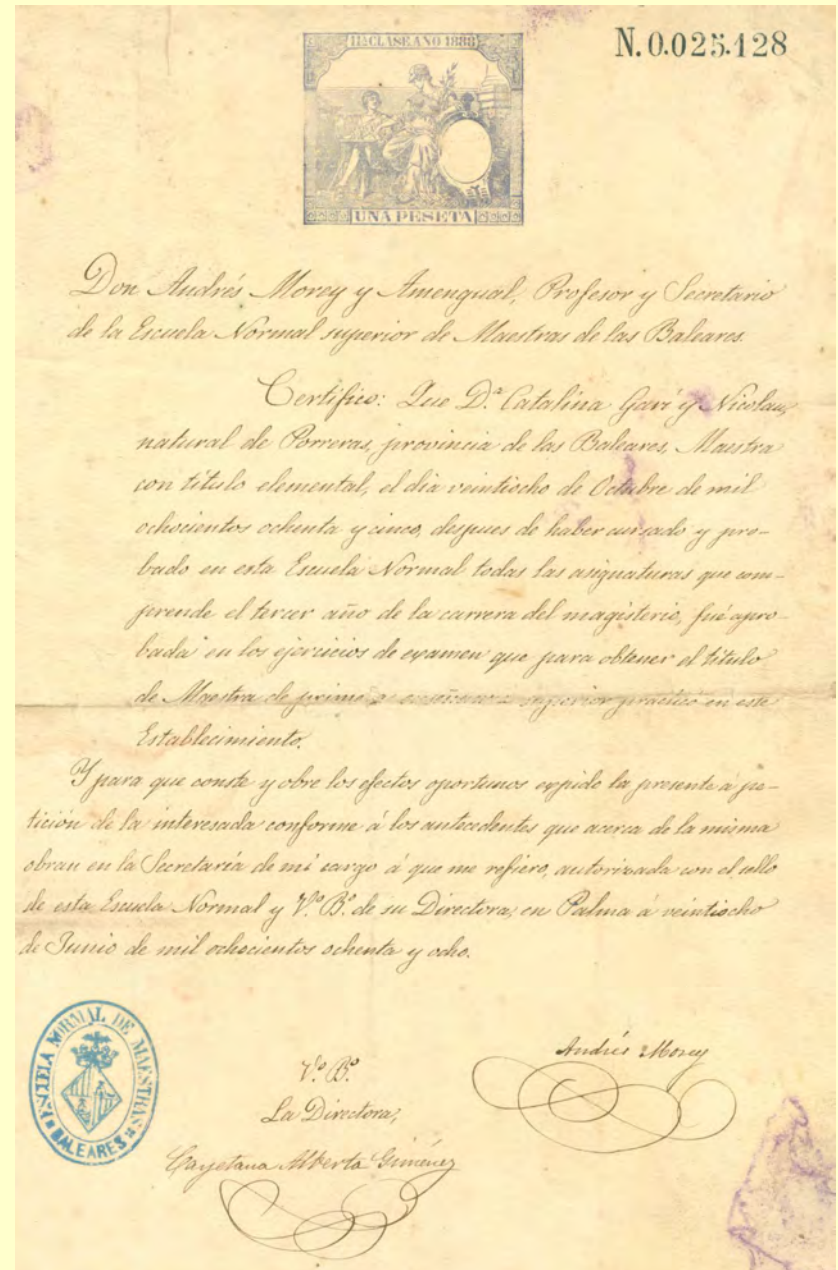 11ª CLASE AÑO 1888
N. 0.025.128
UNA PESETA
Don Andrés Morey y Amengual, Profesor y Secretario
de la Escuela Normal superior de Maestras de las Baleares.
Certifico: Que D.ª Catalina Garí y Nicolau,
natural de Porreras, provincia de las Baleares, Maestra
con título elemental, el dia veintiocho de Octubre de mil
ochocientos ochenta y cinco, despues de haber cursado y pro-
bado en esta Escuela Normal todas las asignaturas que com-
prende el tercer año de la carrera del magisterio, fué apro-
bada en los ejercicios de examen que para obtener el título
de Maestra de primera enseñanza superior practicó en este
Establecimiento.
Y para que conste y obre los efectos oportunos expido la presente á pe-
tición de la interesada conforme á los antecedentes que acerca de la misma
obran en la Secretaría de mi cargo á que me refiero, autorizada con el sello
de esta Escuela Normal y V.º B.º de su Directora, en Palma á veintiocho
de Junio de mil ochocientos ochenta y ocho.
ESCUELA NORMAL DE MAESTRAS
BALEARES
Andrés Morey
V.º B.º
La Directora,
Cayetana Alberta Giménez